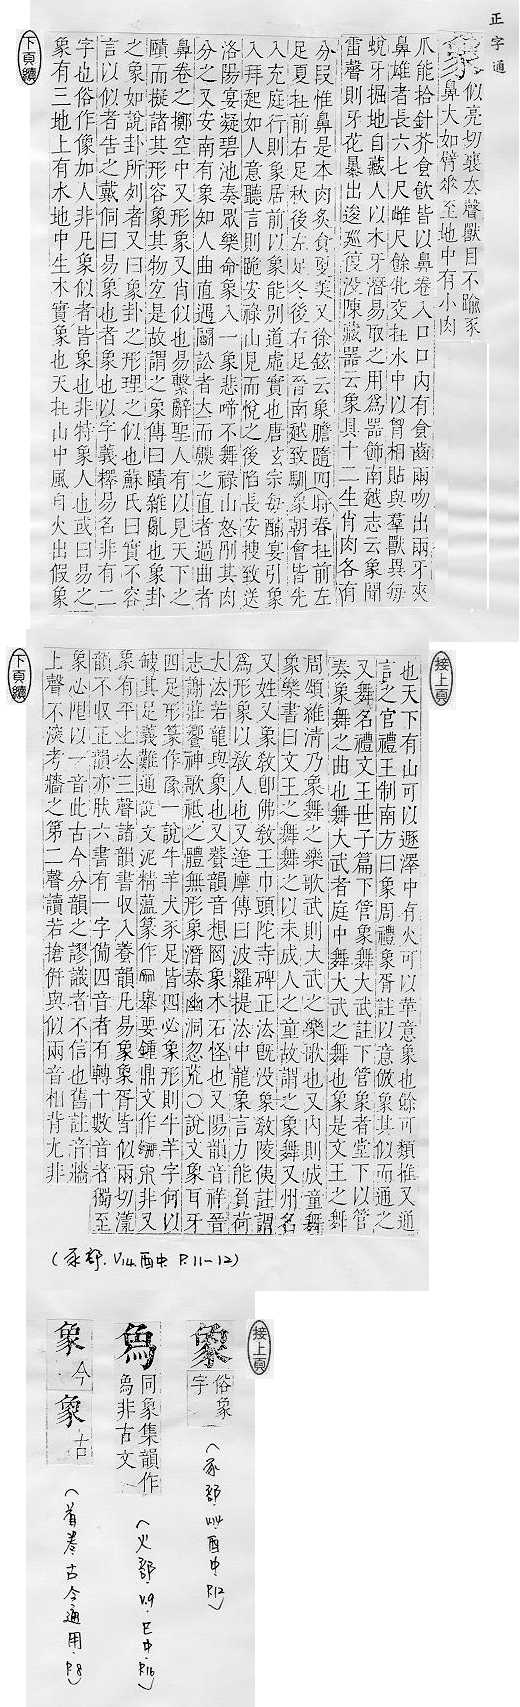 正字通
象
似亮切襄去聲獸目不踰豕
鼻大如臂垂至地中有小肉
爪能拾針芥食飲皆以鼻卷入口口內有食齒兩吻出兩牙夾
鼻雄者長六七尺雌尺餘牝交在水中以胷相貼與羣獸異每
蛻牙掘地自藏人以木牙潛易取之用爲器飾南越志云象聞
雷聲則牙花暴出逡廵復没陳藏器云象具十二生肖肉各有
分段惟鼻是本肉炙食更美又徐鉉云象膽隨四時春在前左
足夏在前右足秋後左足冬後右足晉南越致馴象朝會皆先
入充庭行則象居前以象能別道虛實也唐玄宗每酺宴引象
入拜起如人意聽言則跪安祿山見而悅之後陷長安捜致送
洛陽宴凝碧池奏眾樂命象入一象悲啼不舞祿山怒刖其肉
分之又安南有象知人曲直遇鬬訟者大而觸之直者過曲者
鼻卷之擲空中又形象又肖似也易繫辭聖人有以見天下之
賾而擬諸其形容象其物宜是故謂之象傳曰賾雜亂也象卦
之象如說卦所列者又曰象卦之形理之似也蘇氏曰實不容
言以似者告之戴侗曰易象也者象也以字義釋易名非有二
字也俗作像如人非凡象似者皆象也非特象人也或曰易之
象有三地上有水地中生木實象也天在山中風自火出假象
下頁續
接上頁
也天下有山可以遯澤中有火可以革意象也餘可類推又通
言之官禮王制南方曰象周禮象胥註以意倣象其似而通之
又舞名禮文王世子篇下管象舞大武註下管象者堂下以管
奏象舞之曲也舞大武者庭中舞大武之舞也象是文王之舞
周頌維淸乃象舞之樂歌武則大武之樂歌也又內則成童舞
象樂書曰文王之舞舞之以未成人之童故謂之象舞又州名
又姓又象敎卽佛敎王巾頭陀寺碑正法旣没象敎陵夷註謂
爲形象以敎人也又達摩傳曰波羅提法中龍象言力能負荷
大法若龍與象也又養韻音想罔象木石怪也又陽韻音祥晉
志謝莊饗神歌祇之體無形象潛泰幽洞忽荒〇說文象耳牙
四足形篆作𧰼一說牛羊犬豕足皆四必象形則牛羊字何以
缺其足義難通說文泥精薀篆作舉要鍾鼎文作非又
象有平上去三聲諸韻書收入養韻凡易象象胥皆似兩切瀁
韻不收正韻亦肰六書有一字備四音者有轉十數音者獨至
象必限以一音此古今分韻之謬識者不信也舊註音牆
上聲不淺考牆之第二聲讀若搶併與似兩音相背尤非
下頁續
(豕部.V14.酉中 P.11-12)
接上頁
俗象
字
(豕部.V14.酉中.P.12)
𤉢
同象集韻作
為非古文
(火部.V.9.巳中.P.16)
象今
象古
(首卷.古今通用.P.8)